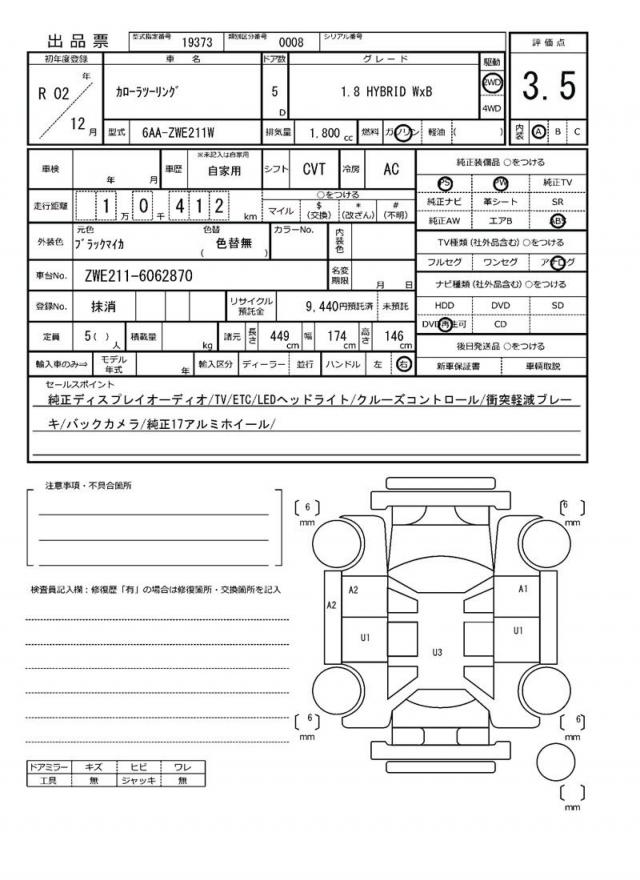 出品票 型式指定番号 19373 類別区分番号 0008 シリアル番号
評価点
3.5
初年度登録 車名 ドア数 グレード 駆動
R 02 年 12 月
カローラツーリング 5 D 1.8 HYBRID WxB 2WD
4WD
型式 6AA-ZWE211W 排気量 1.800 cc 燃料 ガソリン 軽油 ( )
内装 A B C
車検 年 月 車歴 ※未記入は自家用 自家用 シフト CVT 冷房 AC
走行距離 1 万 0 千 4 1 2 km
○をつける
マイル $ (交換) * (改ざん) # (不明)
外装色 元色 ブラックマイカ 色替 色替無 ( ) カラーNo. 内装色
車台No. ZWE211-6062870 名変期限 月 日
登録No. 抹消 リサイクル預託金 9,440円預託済 未預託
定員 5( ) 人 積載量 kg 諸元 長さ 449 cm 幅 174 cm 高さ 146 cm
輸入車のみ⇒ モデル年式 年 輸入区分 ディーラー 並行 ハンドル 左 右
純正装備品 ○をつける
PS PW 純正TV
純正ナビ 革シート SR
純正AW エアB ABS
TV種類(社外品含む)○をつける
フルセグ ワンセグ アナログ
ナビ種類(社外品含む)○をつける
HDD DVD SD
DVD再生可 CD
後日発送品 ○をつける
新車保証書 車輌取説
セールスポイント
純正ディスプレイオーディオ/TV/ETC/LEDヘッドライト/クルーズコントロール/衝突軽減ブレー
キ/バックカメラ/純正17アルミホイール/
注意事項・不具合箇所
検査員記入欄:修復歴「有」の場合は修復箇所・交換箇所を記入
ドアミラー キズ ヒビ ワレ
工具 無 ジャッキ 無
6 mm
6 mm
A2 A2 A1
U1 U3 U1
6 mm
6 mm
mm